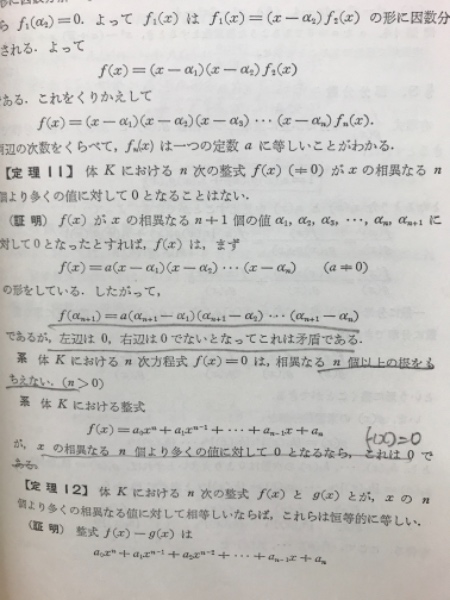 ら f₁(α₂)=0. よって f₁(x) は f₁(x)=(x−α₂)f₂(x) の形に因数分
される. よって
f(x)=(x−α₁)(x−α₂)f₂(x)
である. これをくりかえして
f(x)=(x−α₁)(x−α₂)(x−α₃) ⋯ (x−αₙ)fₙ(x).
両辺の次数をくらべて, fₙ(x) は一つの定数 a に等しいことがわかる.
【定理 11】 体 K における n 次の整式 f(x) (≠0) が x の相異なる n
個より多くの値に対して 0 となることはない.
(証明) f(x) が x の相異なる n+1 個の値 α₁, α₂, α₃, ⋯, αₙ, αₙ₊₁ に
対して 0 となったとすれば, f(x) は, まず
f(x)=a(x−α₁)(x−α₂) ⋯ (x−αₙ) (a≠0)
の形をしている. したがって,
f(αₙ₊₁)=a(αₙ₊₁−α₁)(αₙ₊₁−α₂) ⋯ (αₙ₊₁−αₙ)
であるが, 左辺は 0, 右辺は 0 でないとなってこれは矛盾である.
系 体 K における n 次方程式 f(x)=0 は, 相異なる n 個以上の根をも
ちえない. (n>0)
系 体 K における整式
f(x)=a₀xⁿ+a₁xⁿ⁻¹+⋯+aₙ₋₁x+aₙ
f(x)=0
が, x の相異なる n 個より多くの値に対して 0 となるなら, これは 0 で
ある.
【定理 12】 体 K における n 次の整式 f(x) と g(x) とが, x の n
個より多くの相異なる値に対して相等しいならば, これらは恒等的に等しい.
(証明) 整式 f(x)−g(x) は
a₀xⁿ+a₁xⁿ⁻¹+a₂xⁿ⁻²+⋯+aₙ₋₁x+aₙ